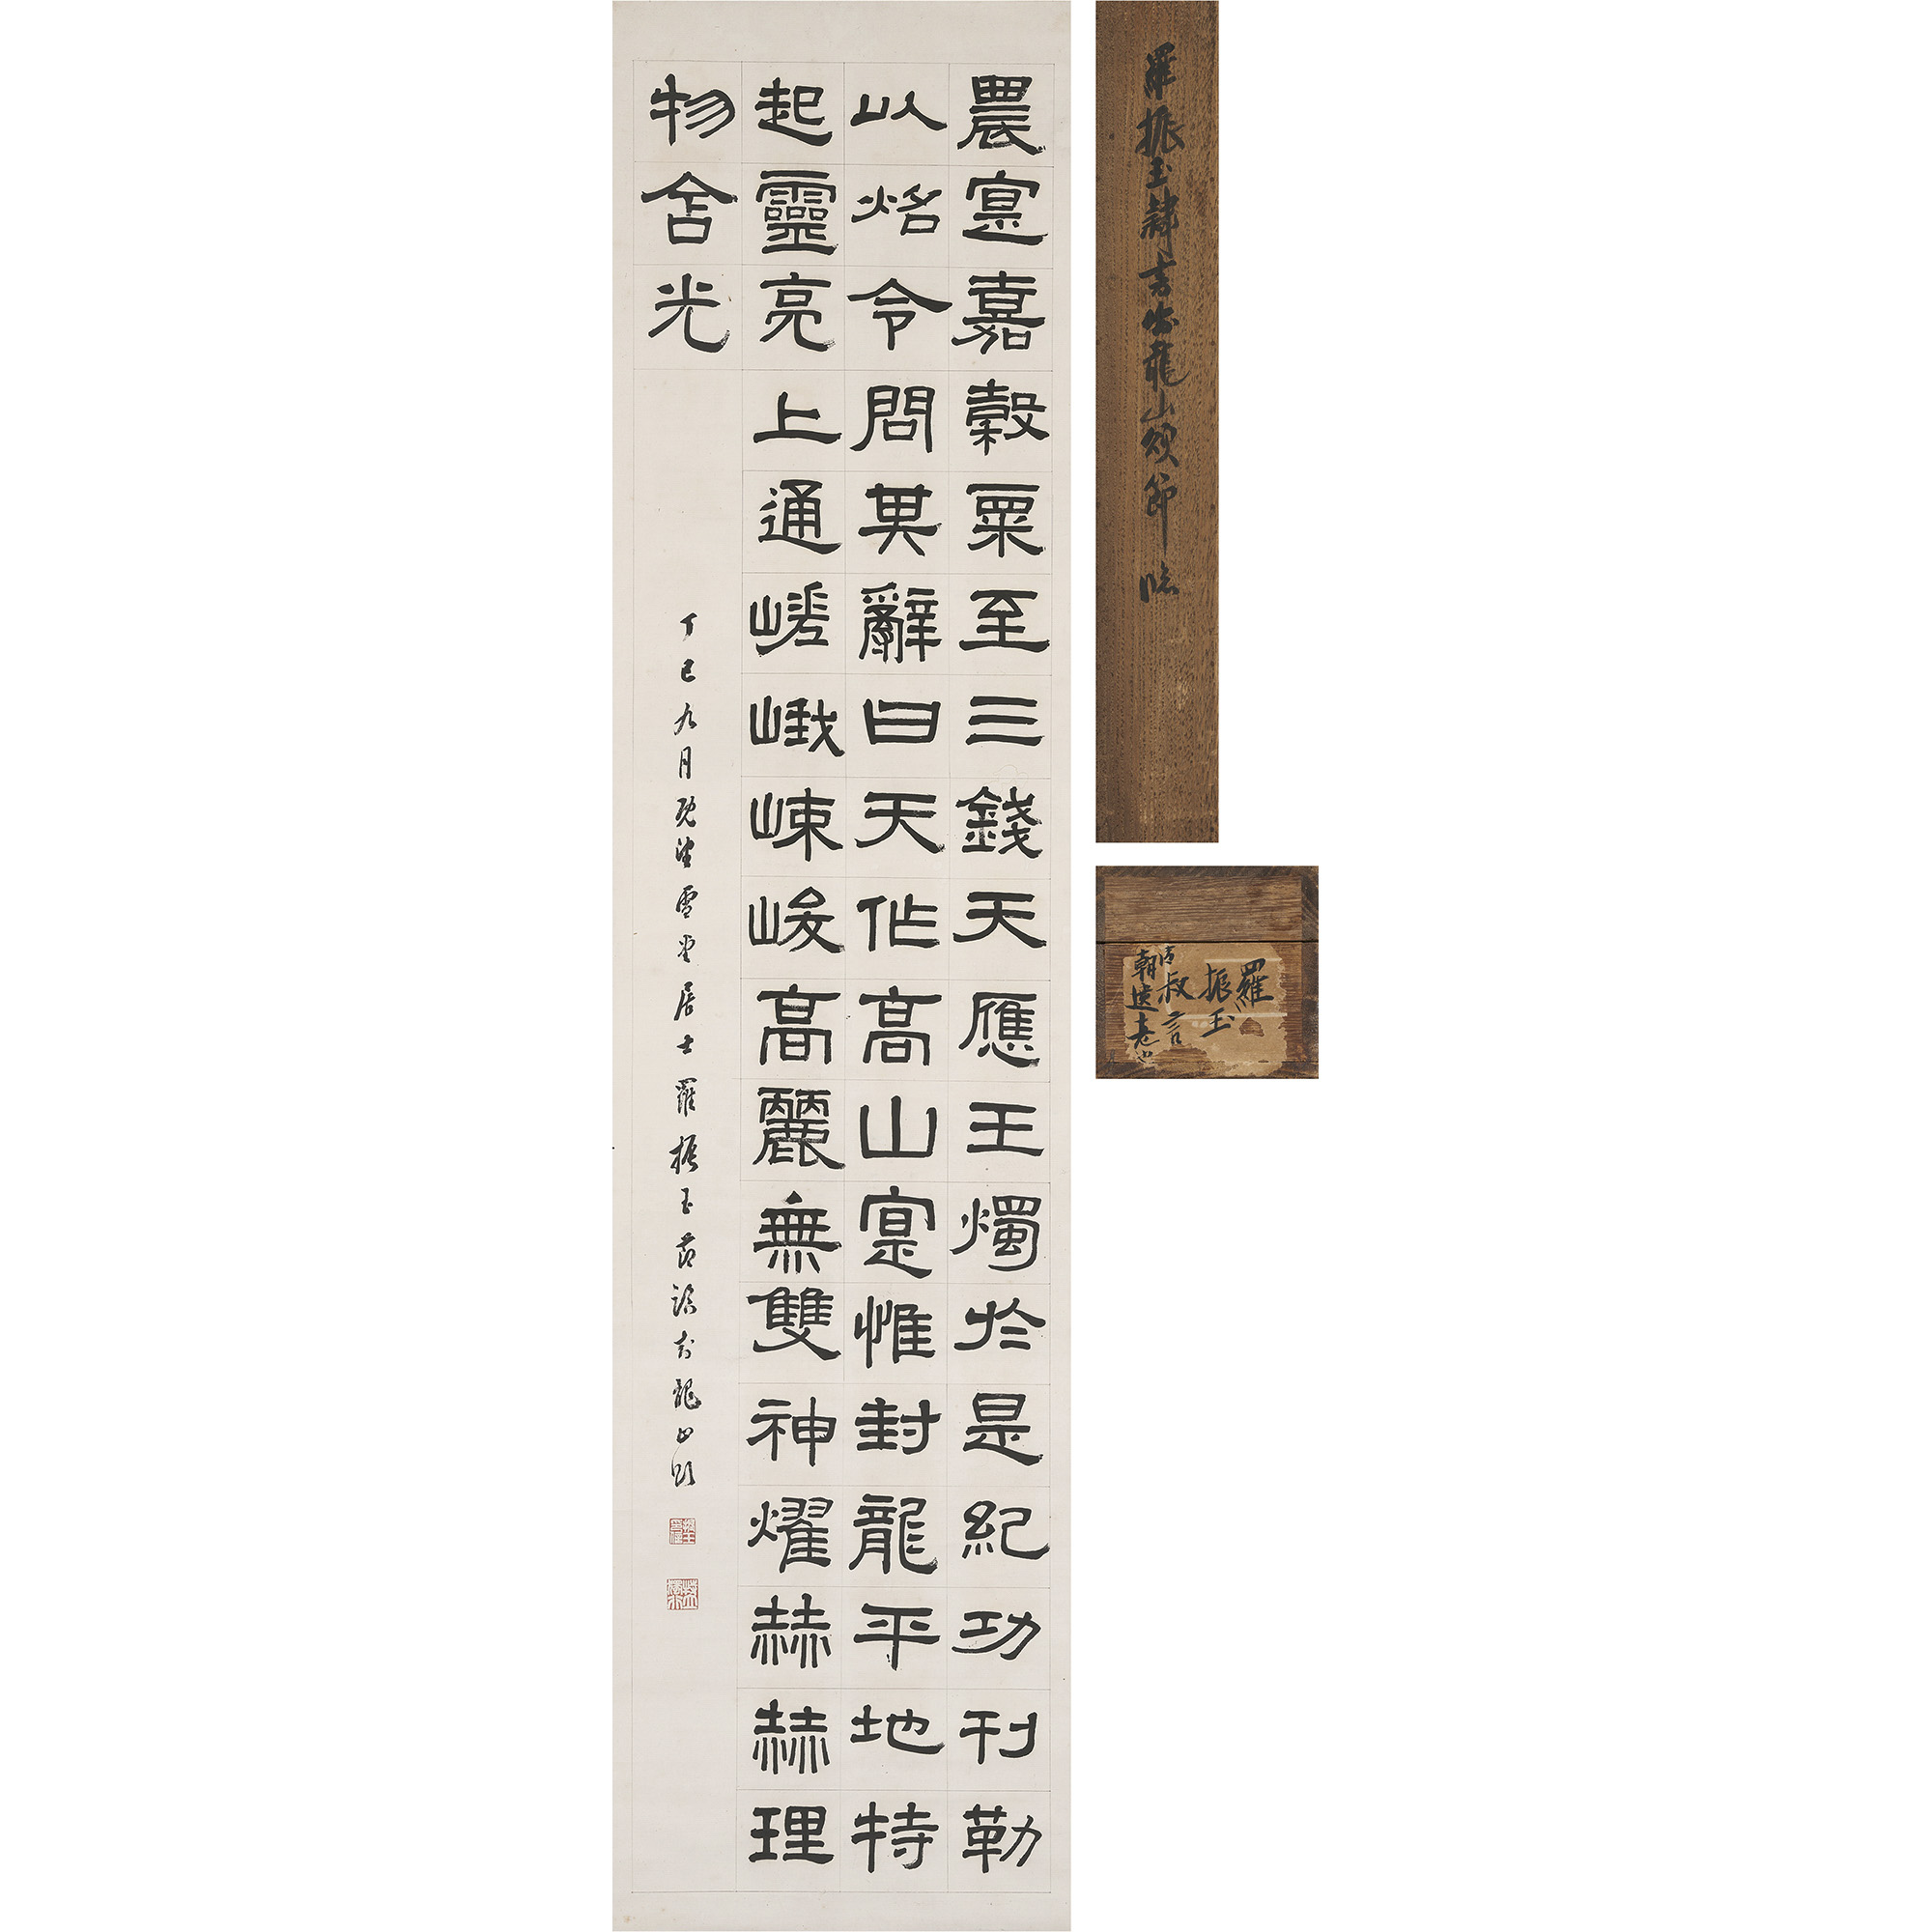 農寔嘉穀粟至三錢天應王燭於是紀功刊勒
以炤令問其辭曰天作高山寔惟封龍平地特
起靈亮上通嵯峨崠峻高麗無雙神燿赫赫理
物含光
丁巳九月既望雪堂居士羅振玉節臨封龍山頌
羅振玉隸書封龍山頌節臨
羅
振玉
叔言
清朝遺老也